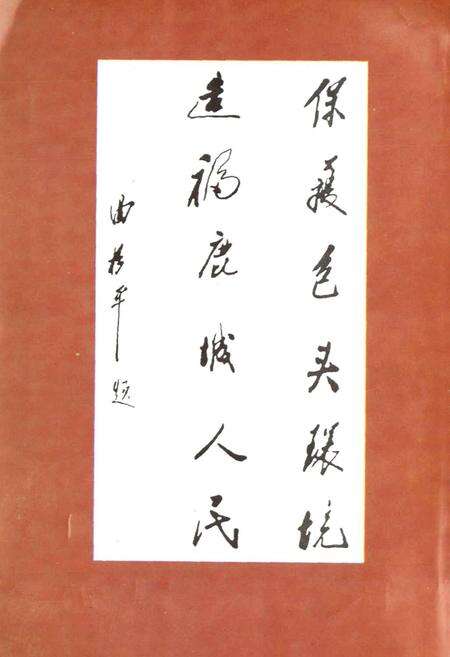 保护包头环境
造福鹿城人民
曲格平题